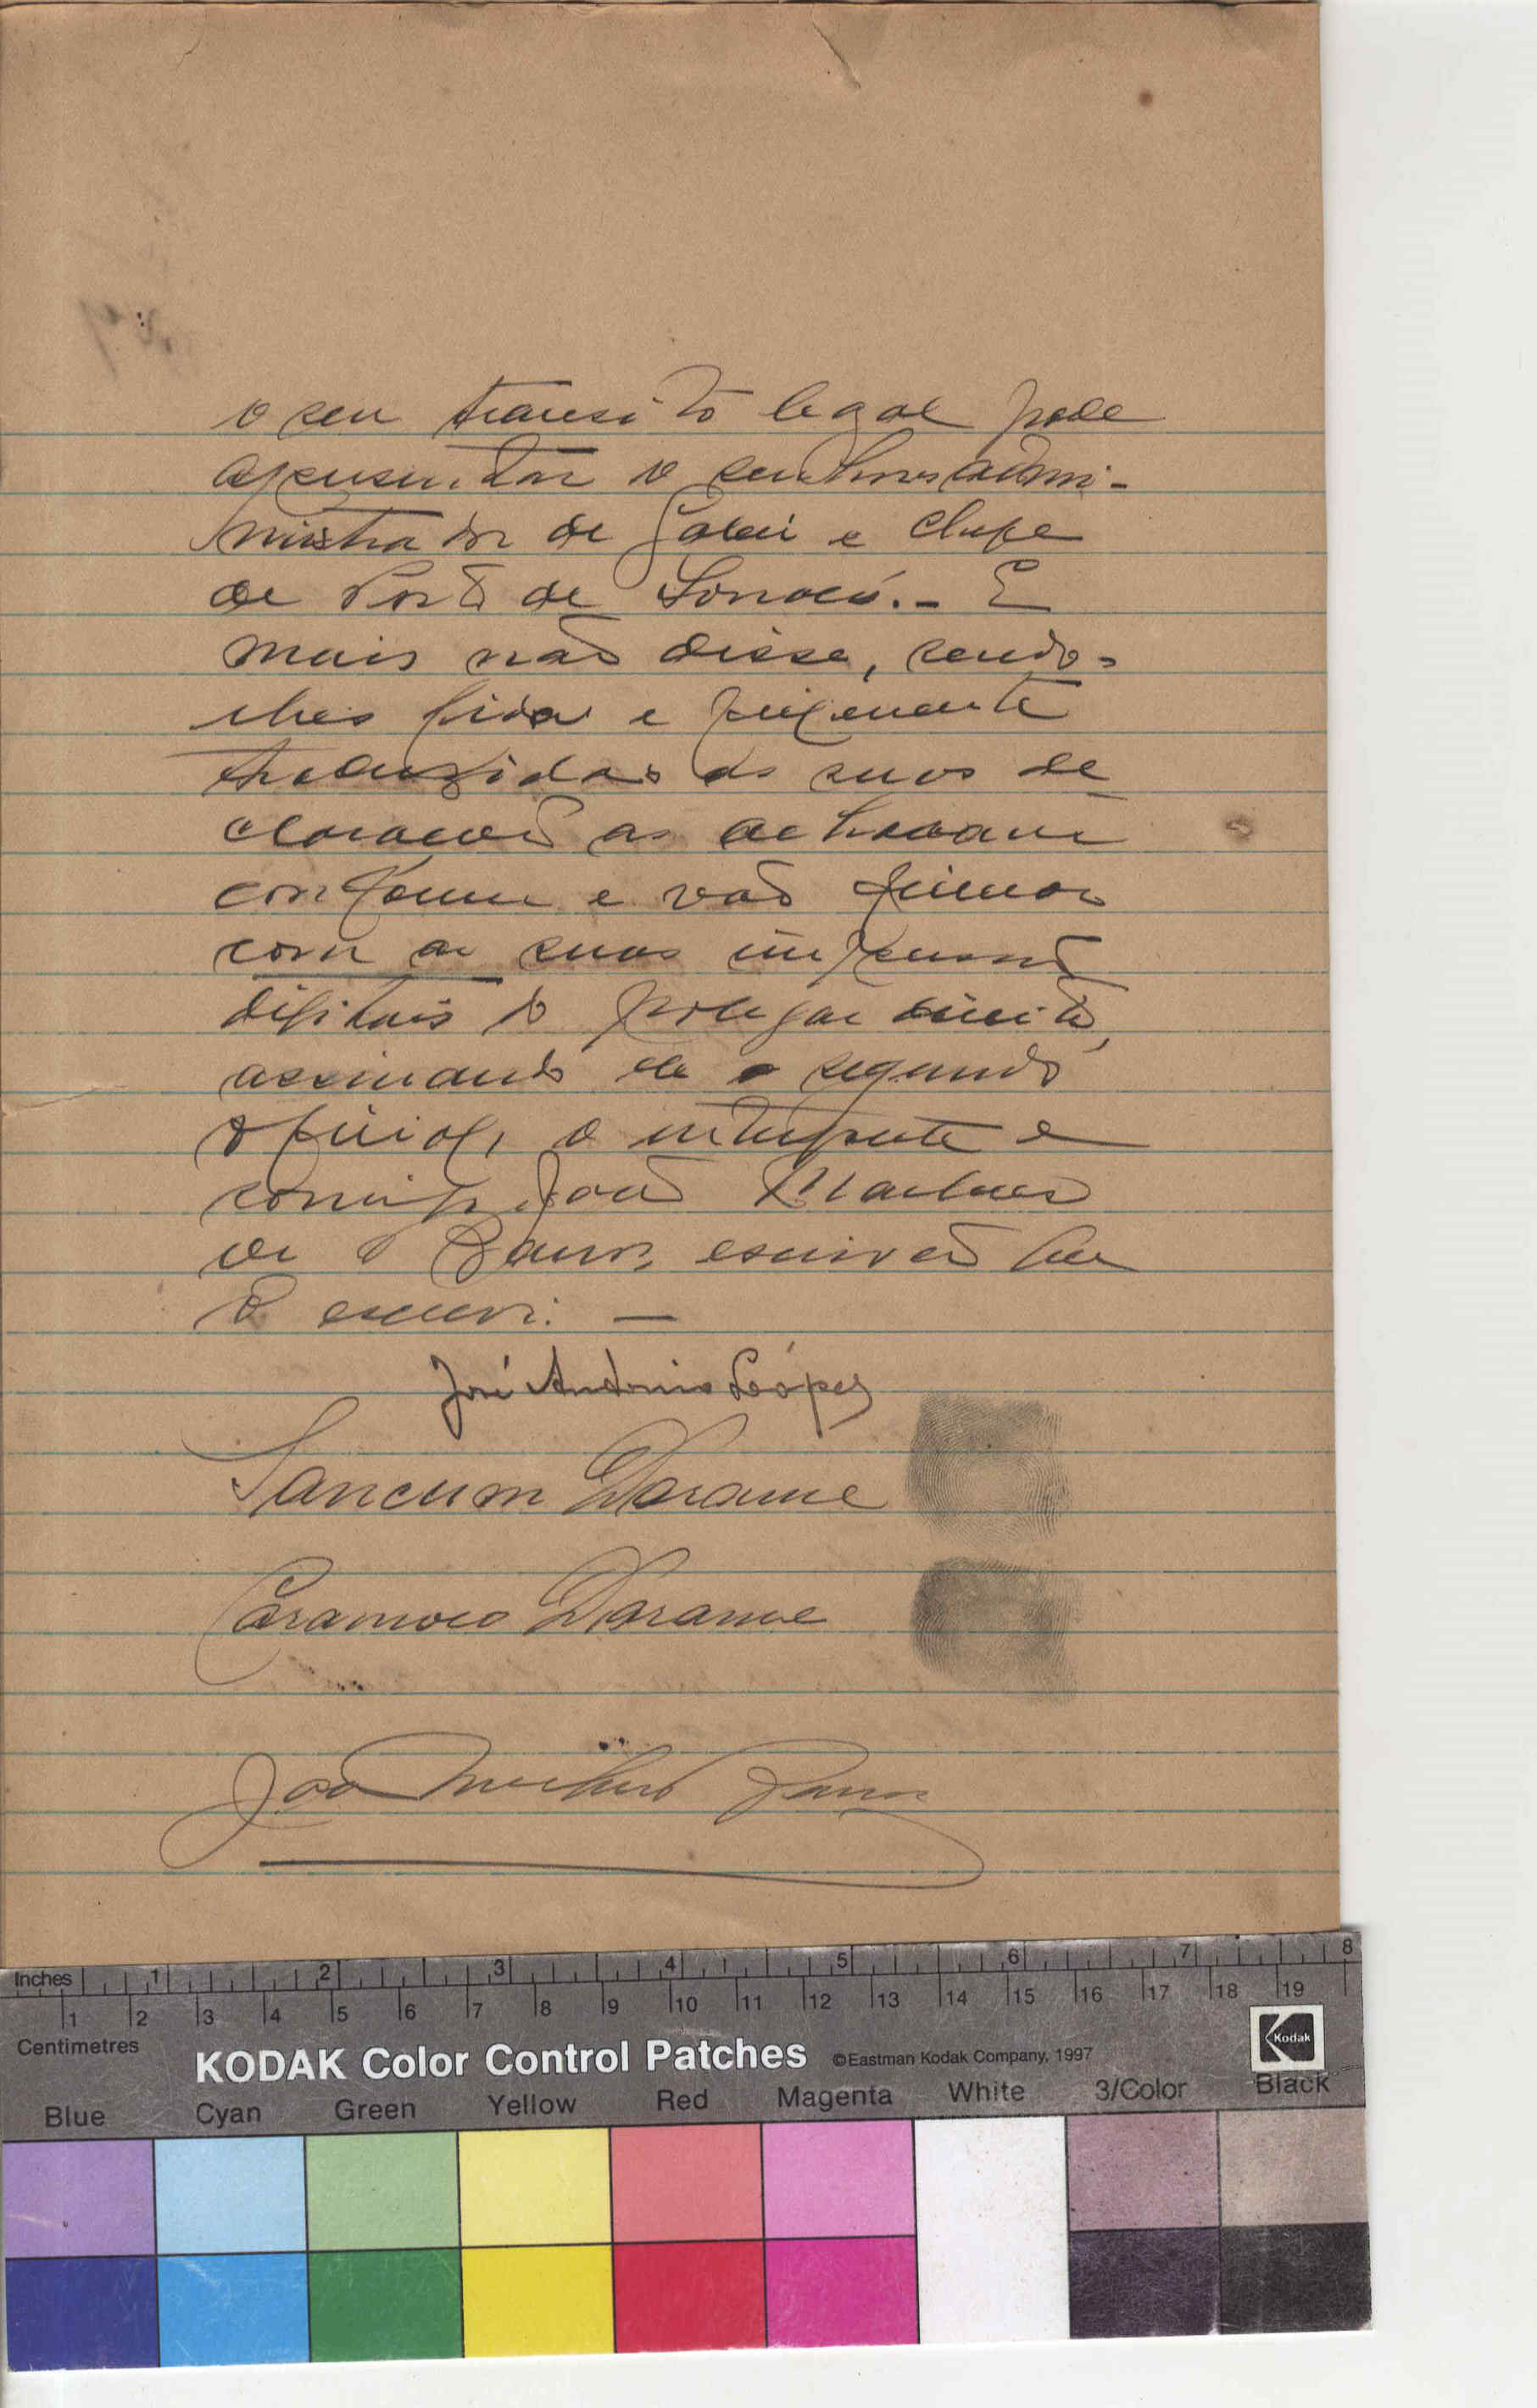 o seu transito legal pode
apresentar o senhor admi-
nistrador de Gabú e chefe
de Posto de Sonaco. - E
mais não disse, sendo-
lhes lida e
traduzidas as suas de
clarações as achavam
conforme e vão firmar
com as suas impressões
digitais do polegar direito,
assinando ele o segundo
oficial, o interprete e
comigo João
de Ramos, escrivão que
o escrevi: —
José Antonio López
Sancum Darame
Caramoco Darame
João Ramos
Inches 1 2 3 4 5 6 7 8
1 2 3 4 5 6 7 8 9 10 11 12 13 14 15 16 17 18 19
Centimetres
KODAK Color Control Patches ©Eastman Kodak Company, 1997 Kodak
Blue Cyan Green Yellow Red Magenta White 3/Color Black